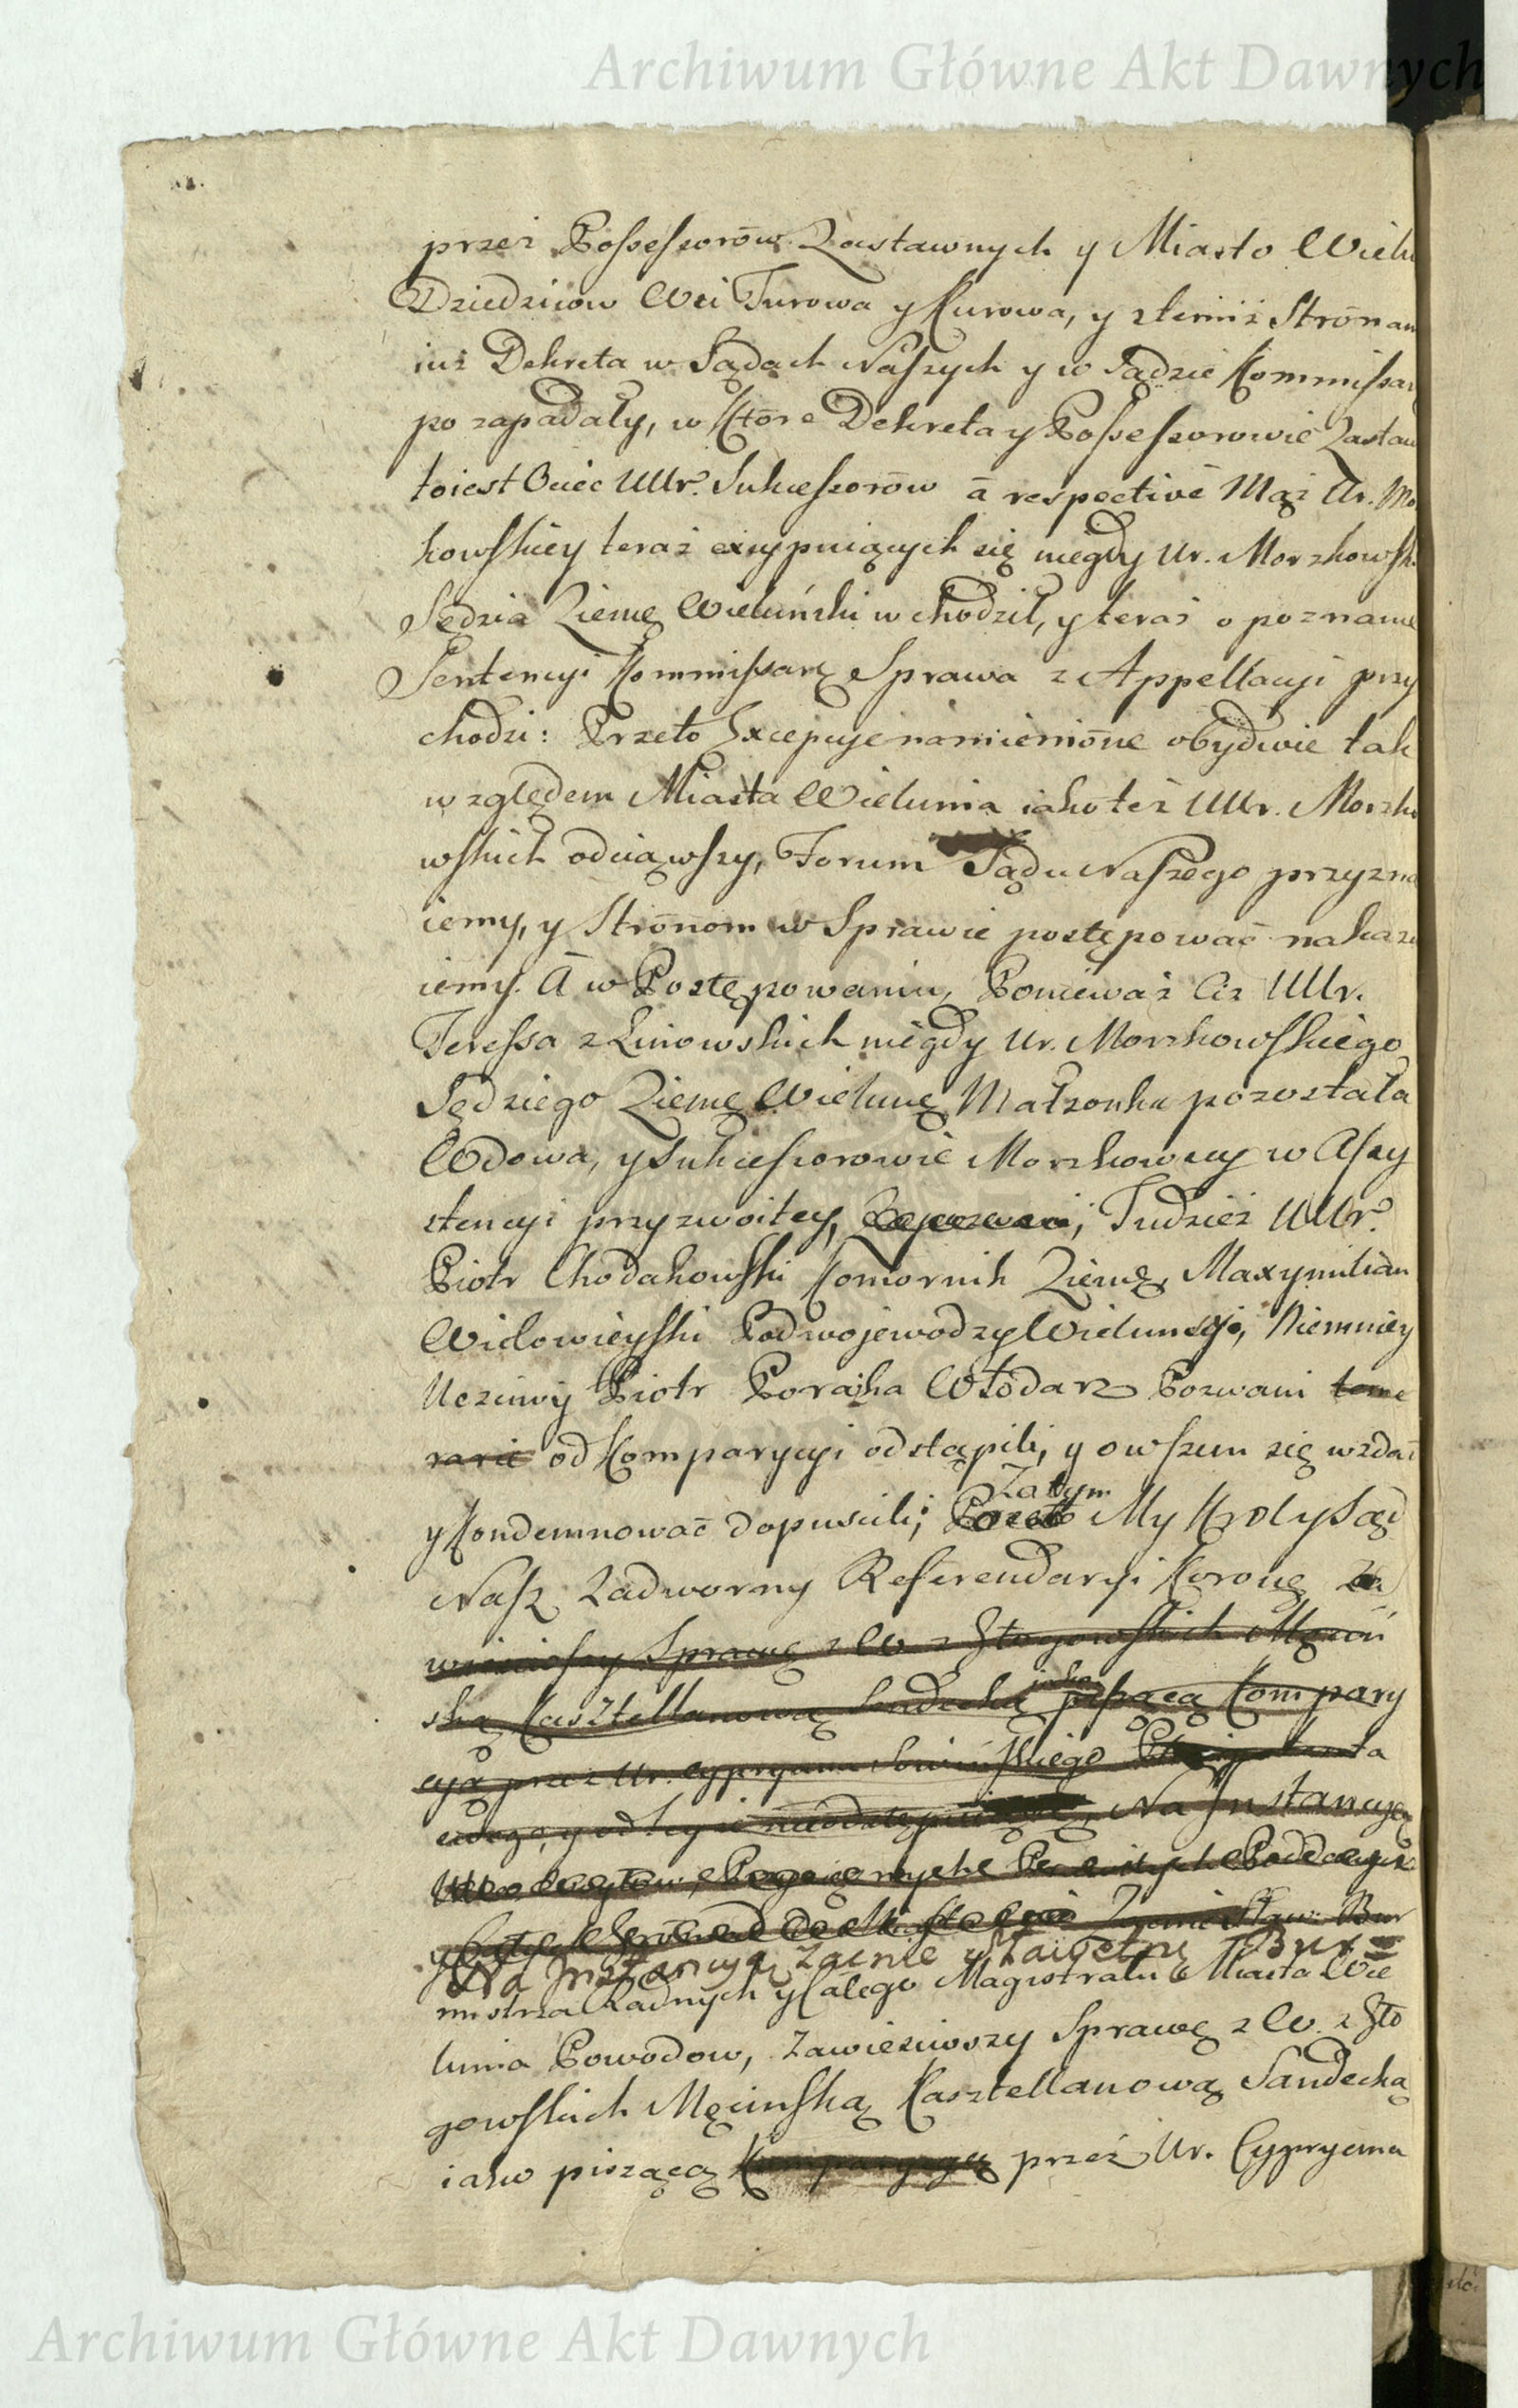 Archiwum Główne Akt Dawnych
przez Possessorow Zastawnych y Miasto Wielu
Dziedzicow Wsi Turowa y Kurowa, y ztemiż Strōnam
iuż Dekreta w Sądach Naszych y w Sądzie Kommissar
po zapadały, w Ktore Dekreta y Possessorowie Zastaw
toiest Ociec UUr. Sukcessorōw ā respectivè Mąż Ur. Mo
kowskiey teraz excypuiących się niegdy Ur. Morzkowsk
Sędzia Ziems. Wieluński wchodził, y teraz o poznanie
Sentencyi Kommissars. Sprawa z Appellacyi przy
chodzi: Przeto Excepcye namieniōne obydwie tak
względem Miasta Wielunia iako też UUr. Morzko
wskich odciąwszy, Forum Sądu Naszego przyzna
iemy, y Strōnom w Sprawie postępować nakazu
iemy. A w Postępowaniu, Ponieważ Ciż UUr.
Teressa z Linowskich niegdy Ur. Morzkowskiego
Sędziego Ziems. Wieluns. Małżonka pozostała
Wdowa, y Sukcessorowie Morzkowscy w Assy
stencyi przyzwoitey, Tudzież UUr.
Piotr Chodakowski Komornik Ziems. Maxymilian
Widowieyski Podwojewodzy Wielunski, Niemniey
Uczciwy Piotr Porayka Włodarz Pozwani teme
rariè od Komparycyi odstąpili, y owszem się wzdać
y Kondemnować dopuscili; Przeto Zatym My Krol y Sąd
Nasz Zadworny Referendaryi Koronę za
wiesiwszy Sprawę z W. z Głogowskich Męciń
ską Kasztellanową Sandecką jako piszącą Kompary
cyą przez Ur. Cypryana
y odtey nieodstępuiącą, Na Instancyę
Na Instancyą zacnie Sławetnę Bur
mistrza Radnych y Całego Magistratu Miasta Wie
lunia Powodow, Zawiesiwszy Sprawę z W. z Gło
gowskich Męcinską Kasztellanową Sandecką
iako piszącą Komparycyą przez Ur. Cypryana
Archiwum Główne Akt Dawnych